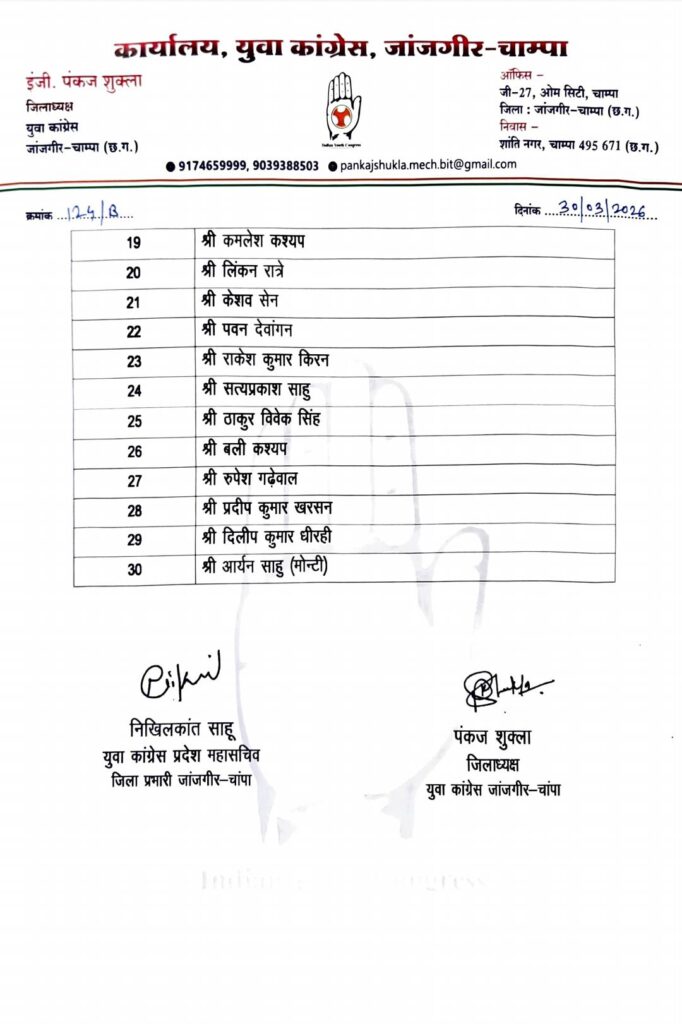 कार्यालय, युवा कांग्रेस, जांजगीर-चाम्पा
इंजी. पंकज शुक्ला
जिलाध्यक्ष
युवा कांग्रेस
जांजगीर-चाम्पा (छ.ग.)
Indian Youth Congress
ऑफिस –
जी-27, ओम सिटी, चाम्पा
जिला : जांजगीर-चाम्पा (छ.ग.)
निवास –
शांति नगर, चाम्पा 495 671 (छ.ग.)
9174659999, 9039388503 pankajshukla.mech.bit@gmail.com
क्रमांक ...124/B.... दिनांक ....30/03/2026....
19 श्री कमलेश कश्यप
20 श्री लिंकन रात्रे
21 श्री केशव सेन
22 श्री पवन देवांगन
23 श्री राकेश कुमार किरन
24 श्री सत्यप्रकाश साहु
25 श्री ठाकुर विवेक सिंह
26 श्री बली कश्यप
27 श्री रुपेश गढ़ेवाल
28 श्री प्रदीप कुमार खरसन
29 श्री दिलीप कुमार धीरही
30 श्री आर्यन साहु (मोन्टी)
निखिलकांत साहू
युवा कांग्रेस प्रदेश महासचिव
जिला प्रभारी जांजगीर–चांपा
पंकज शुक्ला
जिलाध्यक्ष
युवा कांग्रेस जांजगीर–चांपा